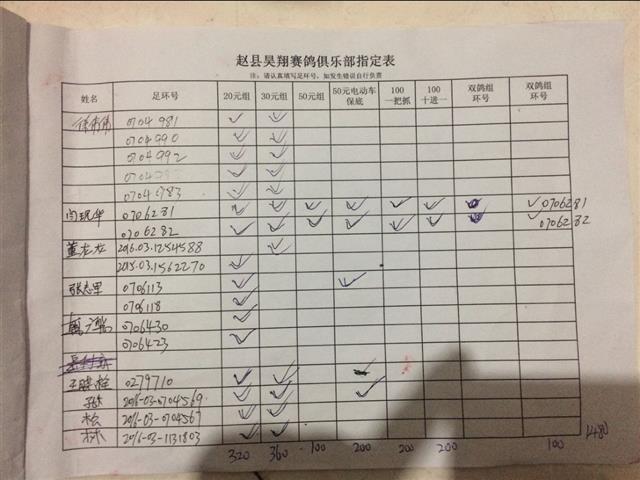 赵县昊翔赛鸽俱乐部指定表
注：请认真填写足环号，如发生错误自行负责
姓名 足环号 20元组 30元组 50元组 50元电动车保底 100一把抓 100十进一 双鸽组环号 双鸽组环号
0704981 ✓ ✓
0704990 ✓ ✓
0704992 ✓ ✓
✓ ✓
0704983 ✓ ✓
0706281 ✓ ✓ ✓ ✓ ✓ ✓ ✓ 0706281
0706282 ✓ ✓ ✓ ✓ ✓ ✓ ✓ 0706282
2016.03.1254588 ✓
2015.03.1562270 ✓
0706113 ✓ ✓
0706118 ✓
0706430 ✓
0706423 ✓
0279710 ✓ ✓
2016-03-0704569 ✓ ✓ ✓
松 2016-03-0704567 ✓ ✓
林 2016-03-1131803 ✓ ✓
320 360 100 200 200 200 100 1480